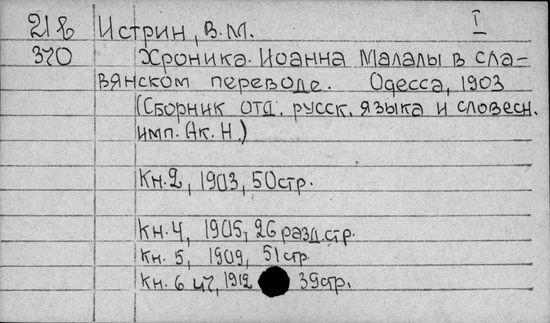 21б Истрин, В.М. I
370 Хроника Иоанна Малалы в сла-
вянском переводе. Одесса, 1903
(Сборник отд. русск. языка и словесн.
имп. Ак. Н.)
Кн. 2, 1903, 50 стр.
Кн. 4, 1905, 26 разд. стр.
Кн. 5, 1909, 51 стр.
Кн. 6 и 7, 1912 39 стр.